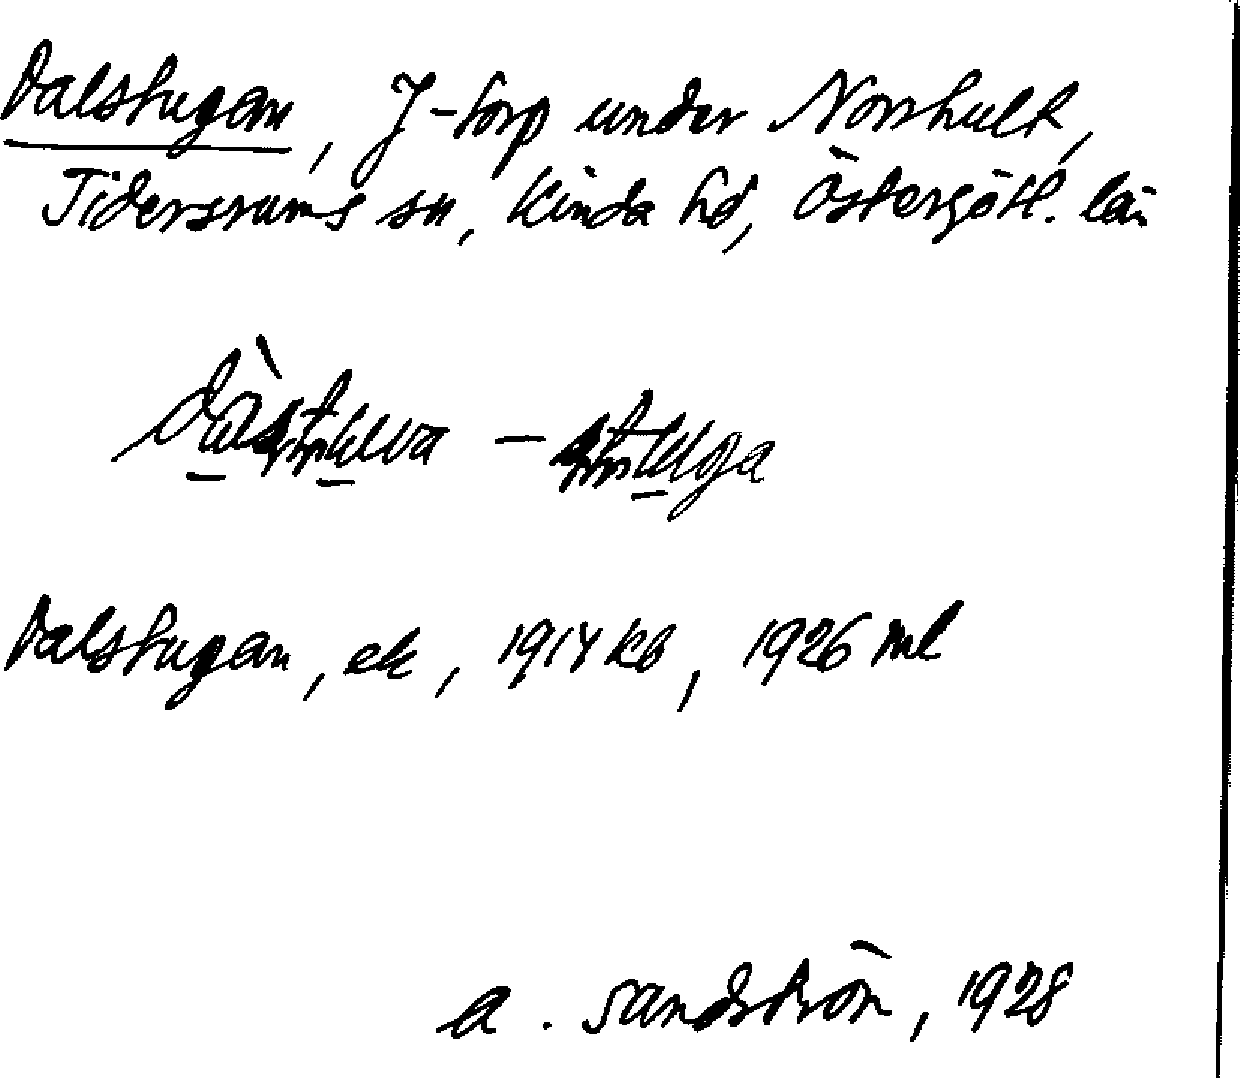 Dalstugan, J-torp under Norrhult,
Tidersrums sn, Kinda hd, Östergötl. län
Dalstugan, ek, 1914 kb, 1926 ml
A. Sandström, 1928